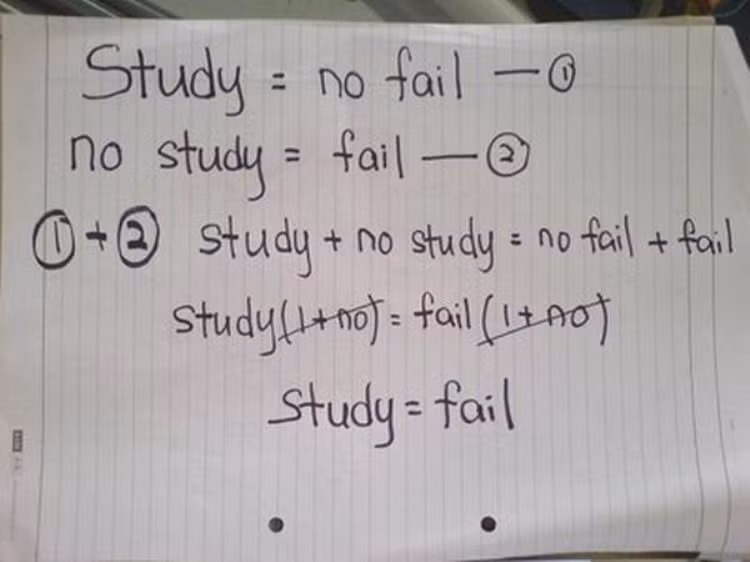 Study = no fail — ①
no study = fail — ②
① + ② study + no study = no fail + fail
study(1+no) = fail (1+no)
Study = fail